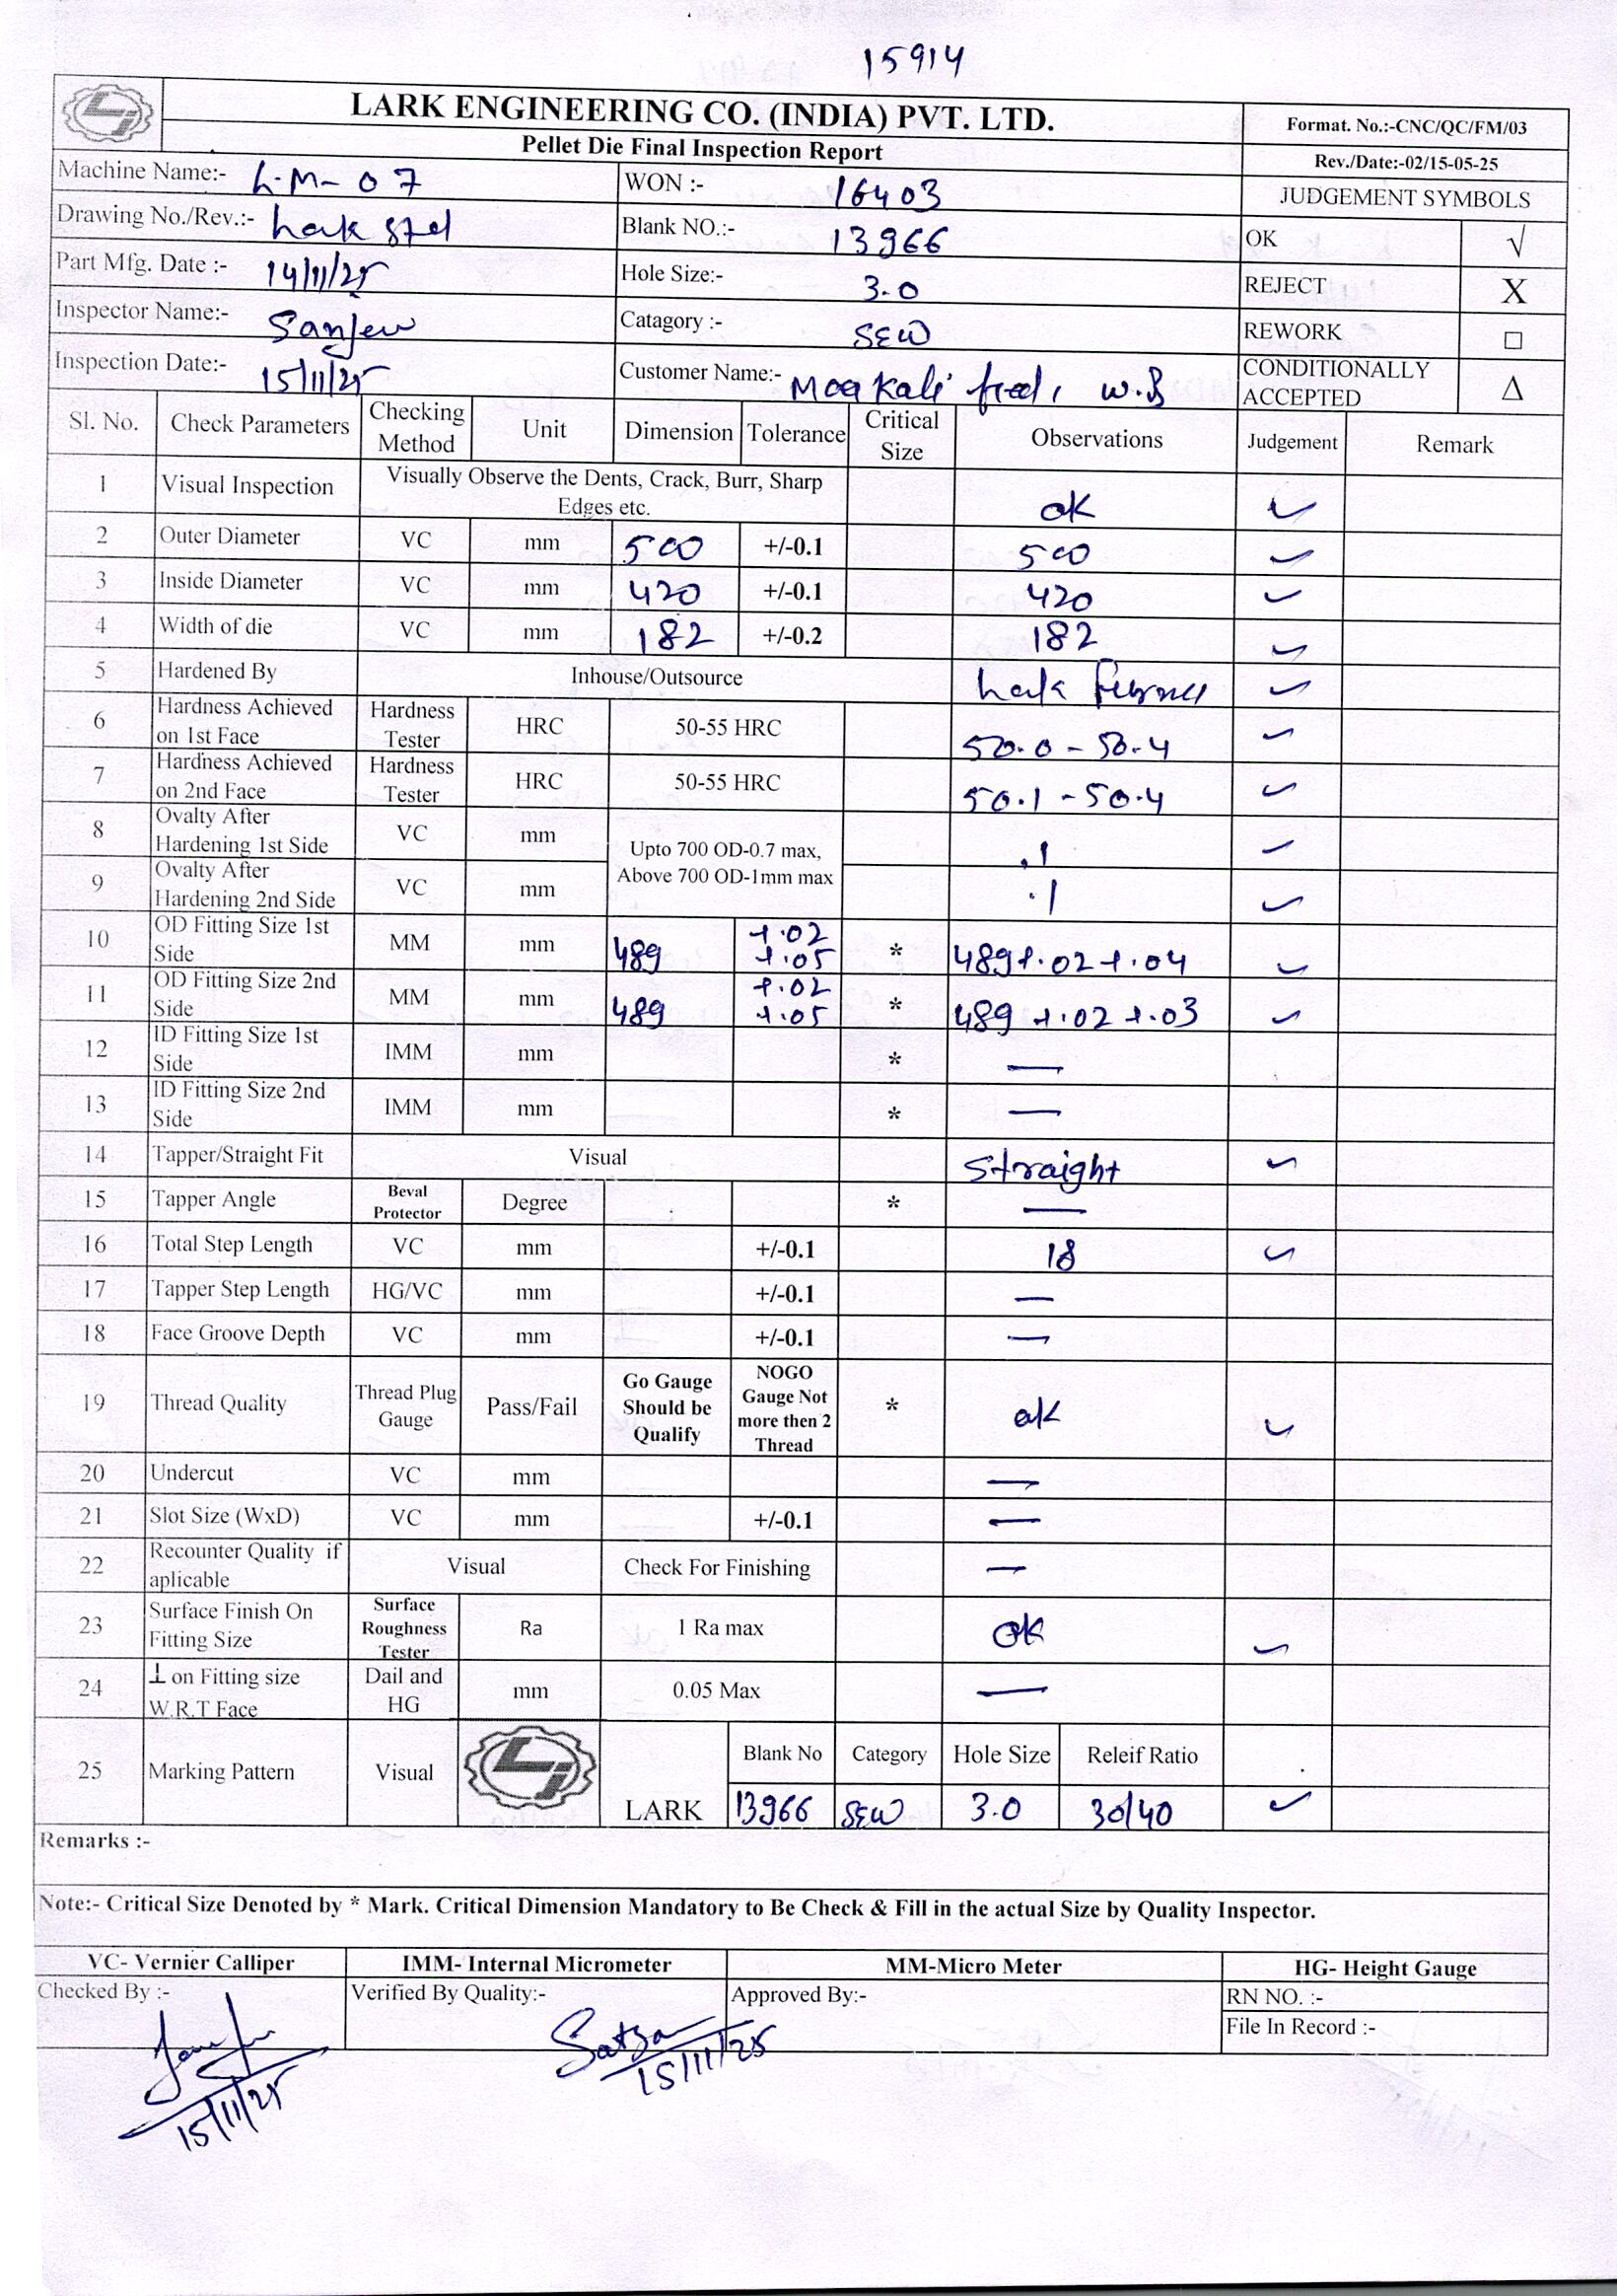 15914
LARK ENGINEERING CO. (INDIA) PVT. LTD.
Pellet Die Final Inspection Report
Format. No.:-CNC/QC/FM/03
Rev./Date:-02/15-05-25
Machine Name:- L-M-07 WON :- 16403 JUDGEMENT SYMBOLS
Drawing No./Rev.:- Lark Std Blank NO.:- 13966 OK √
Part Mfg. Date :- 14/11/25 Hole Size:- 3.0 REJECT X
Inspector Name:- Sanjew Catagory :- SEW REWORK □
Inspection Date:- 15/11/25 Customer Name:- Maa Kali feed, W.B CONDITIONALLY ACCEPTED Δ
Sl. No. Check Parameters Checking Method Unit Dimension Tolerance Critical Size Observations Judgement Remark
1 Visual Inspection Visually Observe the Dents, Crack, Burr, Sharp Edges etc. ok ✓
2 Outer Diameter VC mm 500 +/-0.1 500 ✓
3 Inside Diameter VC mm 420 +/-0.1 420 ✓
4 Width of die VC mm 182 +/-0.2 182 ✓
5 Hardened By Inhouse/Outsource Lark ✓
6 Hardness Achieved on 1st Face Hardness Tester HRC 50-55 HRC 50.0 - 50.4 ✓
7 Hardness Achieved on 2nd Face Hardness Tester HRC 50-55 HRC 50.1 - 50.4 ✓
8 Ovalty After Hardening 1st Side VC mm Upto 700 OD-0.7 max, Above 700 OD-1mm max .1 ✓
9 Ovalty After Hardening 2nd Side VC mm .1 ✓
10 OD Fitting Size 1st Side MM mm 489 +.02 +.05 * 489+.02+.04 ✓
11 OD Fitting Size 2nd Side MM mm 489 +.02 +.05 * 489 +.02 +.03 ✓
12 ID Fitting Size 1st Side IMM mm * —
13 ID Fitting Size 2nd Side IMM mm * —
14 Tapper/Straight Fit Visual Straight ✓
15 Tapper Angle Beval Protector Degree * —
16 Total Step Length VC mm +/-0.1 18 ✓
17 Tapper Step Length HG/VC mm +/-0.1 —
18 Face Groove Depth VC mm +/-0.1 —
19 Thread Quality Thread Plug Gauge Pass/Fail Go Gauge Should be Qualify NOGO Gauge Not more then 2 Thread * ok ✓
20 Undercut VC mm —
21 Slot Size (WxD) VC mm +/-0.1 —
22 Recounter Quality if aplicable Visual Check For Finishing —
23 Surface Finish On Fitting Size Surface Roughness Tester Ra 1 Ra max ok ✓
24 ⊥ on Fitting size W.R.T Face Dail and HG mm 0.05 Max —
25 Marking Pattern Visual LARK Blank No Category Hole Size Releif Ratio
13966 SEW 3.0 30/40 ✓
Remarks :-
Note:- Critical Size Denoted by * Mark. Critical Dimension Mandatory to Be Check & Fill in the actual Size by Quality Inspector.
VC- Vernier Calliper IMM- Internal Micrometer MM-Micro Meter HG- Height Gauge
Checked By :- Verified By Quality:- Approved By:- RN NO. :-
File In Record :-
15/11/25 15/11/25